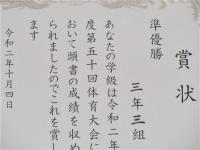 賞状
準優勝
三年三組
あなたの学級は令和二年
度第五十回体育大会に
おいて頭書の成績を収め
られましたのでこれを賞し
ます
令和二年十月四日